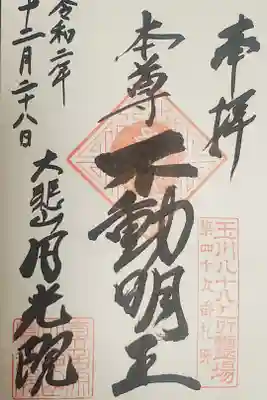 奉拝
玉川八十八ヶ所霊場
第四十九番札所
本尊
不動明王
令和二年
十二月二十八日
大悲山円光院